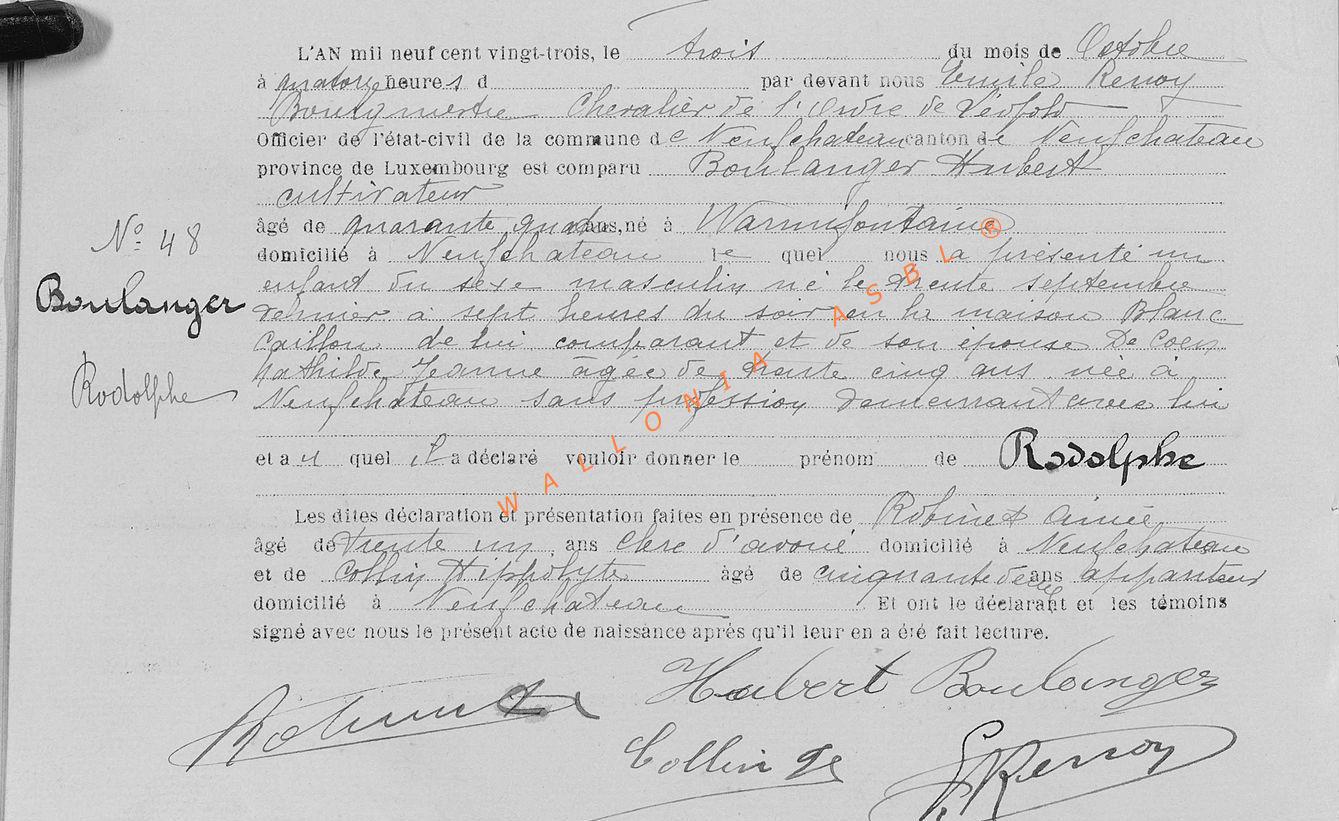 L'AN mil neuf cent vingt-trois, le trois du mois de Octobre
à quatorze heures d par devant nous Emile Renoy
Bourgmestre Chevalier de l'Ordre de Léopold
Officier de l'état-civil de la commune de Neufchateau canton de Neufchateau
province de Luxembourg est comparu Boulanger Hubert
cultivateur
âgé de quarante quatre ans, né à Warmifontaine
N° 48
domicilié à Neufchateau le quel nous a présenté un
enfant du sexe masculin né le trente septembre
Boulanger
dernier à sept heures du soir en la maison Blanc
Caillou de lui comparant et de son épouse De Coen
Mathilde Jeanne âgée de trente cinq ans née à
Rodolphe
Neufchateau sans profession demeurant avec lui
et au quel il a déclaré vouloir donner le prénom de Rodolphe
Les dites déclaration et présentation faites en présence de Robinet Aimé
âgé de trente un ans clerc d'avoué domicilié à Neufchateau
et de Collin Hippolyte âgé de cinquante deux ans appariteur
domicilié à Neufchateau Et ont le déclarant et les témoins
signé avec nous le présent acte de naissance après qu'il leur en a été fait lecture.
Hubert Boulanger
Robinet
Collin
E. Renoy
WALLONIA ASBL ®